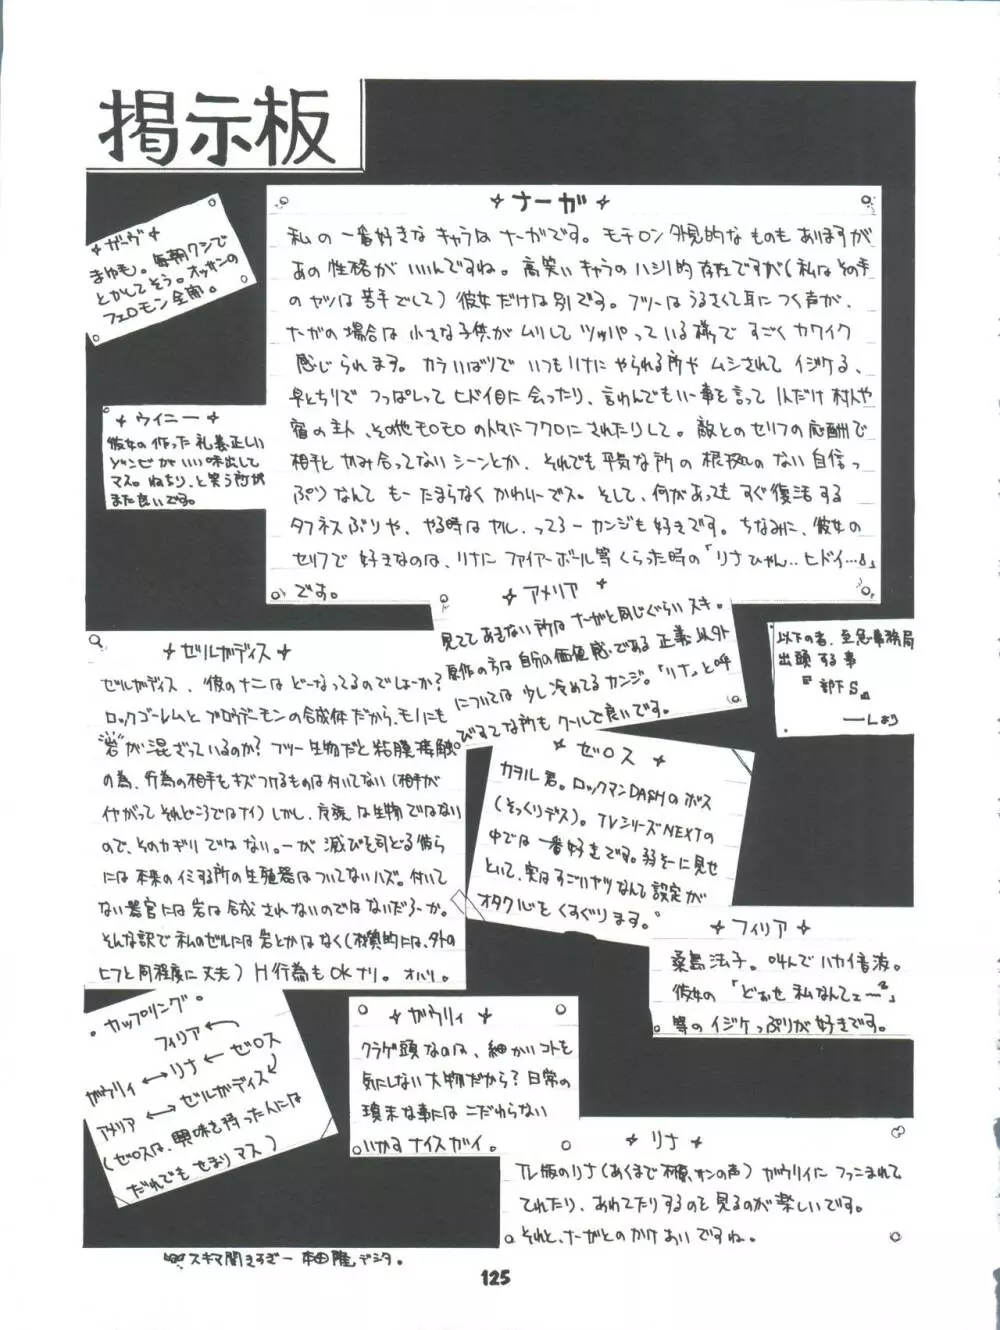 掲示板
✧ ガーヴ ✧
まゆも。毎朝クシで
とかしてそう。オッサンの
フェロモン全開。
✧ ナーガ ✧
私の一番好きなキャラはナーガです。モチロン外見的なものもありますが
あの性格がいいんですね。高笑いキャラのハシリ的存在ですが(私はその手
のヤツは苦手でして)彼女だけは別です。フツーはうるさくて耳につく声が、
ナーガの場合は小さな子供がムリしてツッパっている様ですごくカワイク
感じられます。カラいばりでいつもリナにやられる所やムシされてイジケる、
早とちりでつっぱしってヒドイ目に会ったり、言わんでもいー事を言って1人だけ村人や
宿の主人、その他モロモロの人々にフクロにされたりして。敵とのセリフの応酬で
相手とかみ合ってないシーンとか、それでも平気な所の根拠のない自信っ
ぷりなんてもーたまらなくかわいーでス。そして、何があってもすぐ復活する
タフネスぶりや、やる時はヤル、ってろーカンジも好きです。ちなみに、彼女の
セリフで好きなのは、リナにファイアーボール等くらった時の「リナひゃん‥ヒドイ…」
です。
✧ ウイニー ✧
彼女の作った礼義正しい
ゾンビがいい味出して
マス。ねちり、と笑う所が
また良いです。
✧ アメリア ✧
見ててあきない所はナーガと同じぐらいスキ。
原作の方は自分の価値感である正義以外
については少し冷めてるカンジ。「リナ」と呼
びすてな所もクールで良いです。
以下の者、至急事務局
出頭する事
『部下S』
―Lより
✧ ゼルガディス ✧
ゼルガディス、彼のナニはどーなってるのでしょーか?
ロックゴーレムとブロウデーモンの合成体だから、モノにも
岩が混ざっているのか?フツー生物だと粘膜接触
の為、行為の相手をキズつけるものは付いてない(相手が
イヤがってそれどころではナイ)しかし、魔族は生物ではない
ので、そのカギリではない。―が滅びを司どる彼ら
には本来のイミする所の生殖器はついてないハズ。付いて
ない器官には岩は合成されないのではないだろーか。
そんな訳で私のゼルには岩とかはなく(材質的には、外の
ヒフと同程度に丈夫)H行為もOKナリ。オハリ。
✧ ゼロス ✧
カヲル君。ロックマンDASHのボス
(そっくりデス)。TVシリーズNEXTの
中では一番好きです。弱そーに見せ
といて、実はすごいヤツなんて設定が
オタク心をくすぐります。
✧ フィリア ✧
桑島法子。叫んでハカイ音波。
彼女の「どおせ私なんてェ~」
等のイジケっぷりが好きです。
・カップリング。
フィリア
ガウリィ ←→ リナ ← ゼロス
アメリア ←→ ゼルガディス
(ゼロスは、興味を持った人には
だれでもせまりマス)
✧ ガウリィ ✧
クラゲ頭なのは、細かいコトを
気にしない大物だから?日常の
瑣末な事にはこだわらない
いかすナイスガイ。
✧ リナ ✧
TV版のリナ(あくまで林原サンの声)ガウリィにつっこまれて
てれたり、あわてたりするのを見るのが楽しいです。
それと、ナーガとのかけあいですね。
スキマ開きろぎー 本田隆デシタ。
125